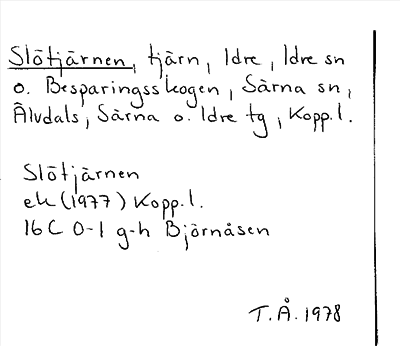 Slötjärnen, tjärn, Idre, Idre sn
o. Besparingsskogen, Särna sn,
Älvdals, Särna o. Idre tg, Kopp.l.
Slötjärnen
ek (1977) Kopp.l.
16C 0-1 g-h Björnåsen
T.Å. 1978